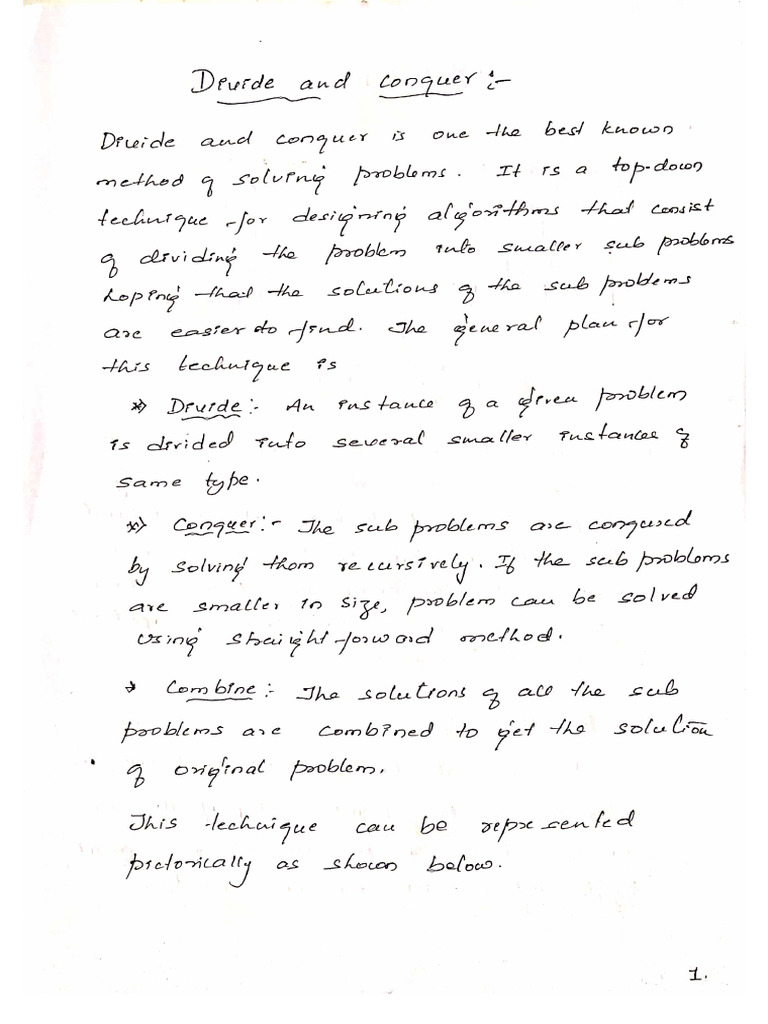 Divide and conquer :-
Divide and conquer is one the best known
method of solving problems. It is a top-down
technique for designing algorithms that consist
of dividing the problem into smaller sub problems
hoping that the solutions of the sub problems
are easier to find. The general plan for
this technique is
*) Divide :- An instance of a given problem
is divided into several smaller instances of
same type.
*) Conquer :- The sub problems are conquered
by solving them recursively. If the sub problems
are smaller in size, problem can be solved
using straight forward method.
* Combine :- The solutions of all the sub
problems are combined to get the solution
of original problem.
This technique can be represented
pictorically as shown below.
1.